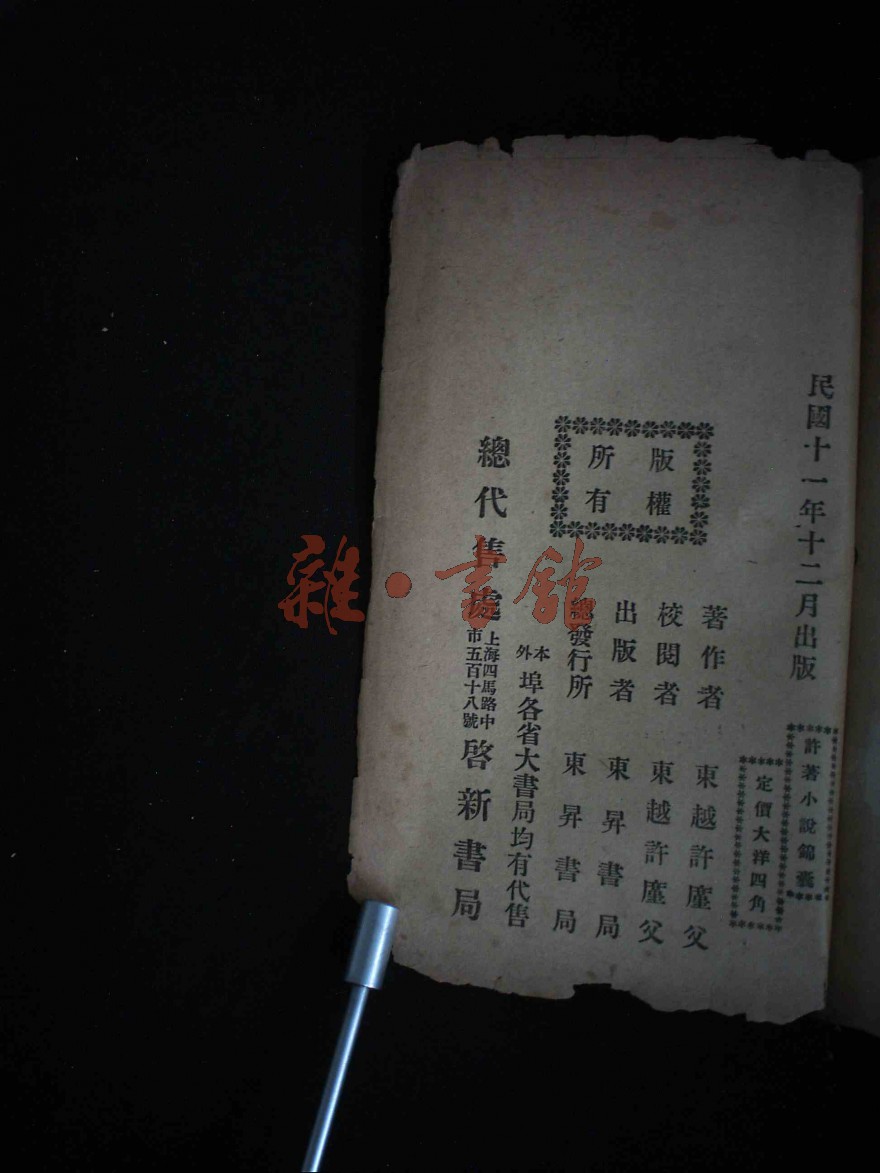 民國十一年十二月出版
許著小說錦囊
定價大洋四角
版權
所有
著作者 東越許廑父
校閱者 東越許廑父
出版者 東昇書局
總發行所 東昇書局
本外埠各省大書局均有代售
總代售處 上海四馬路中市五百十八號 啓新書局
雜·書館